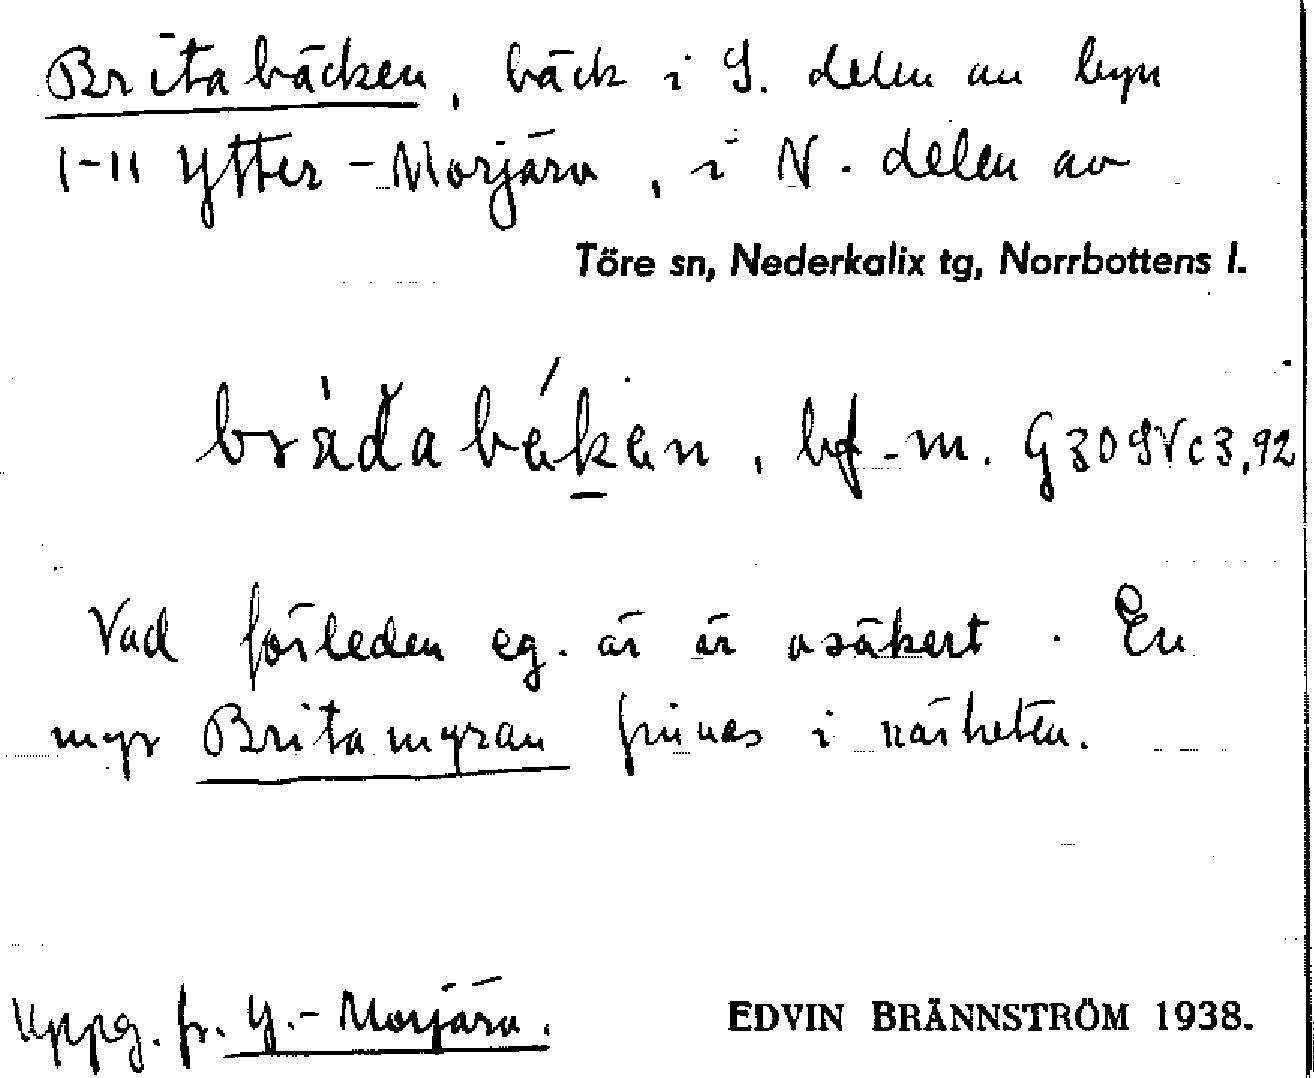 Britabäcken, bäck i S. delen av byn
1-11 Ytter-Morjärv, i N. delen av
Töre sn, Nederkalix tg, Norrbottens l.
bf. m. G 30
Vad förleden eg. är är osäkert. En
myr Britamyran finnes i närheten.
Uppg. fr. Y.-Morjärv.
EDVIN BRÄNNSTRÖM 1938.